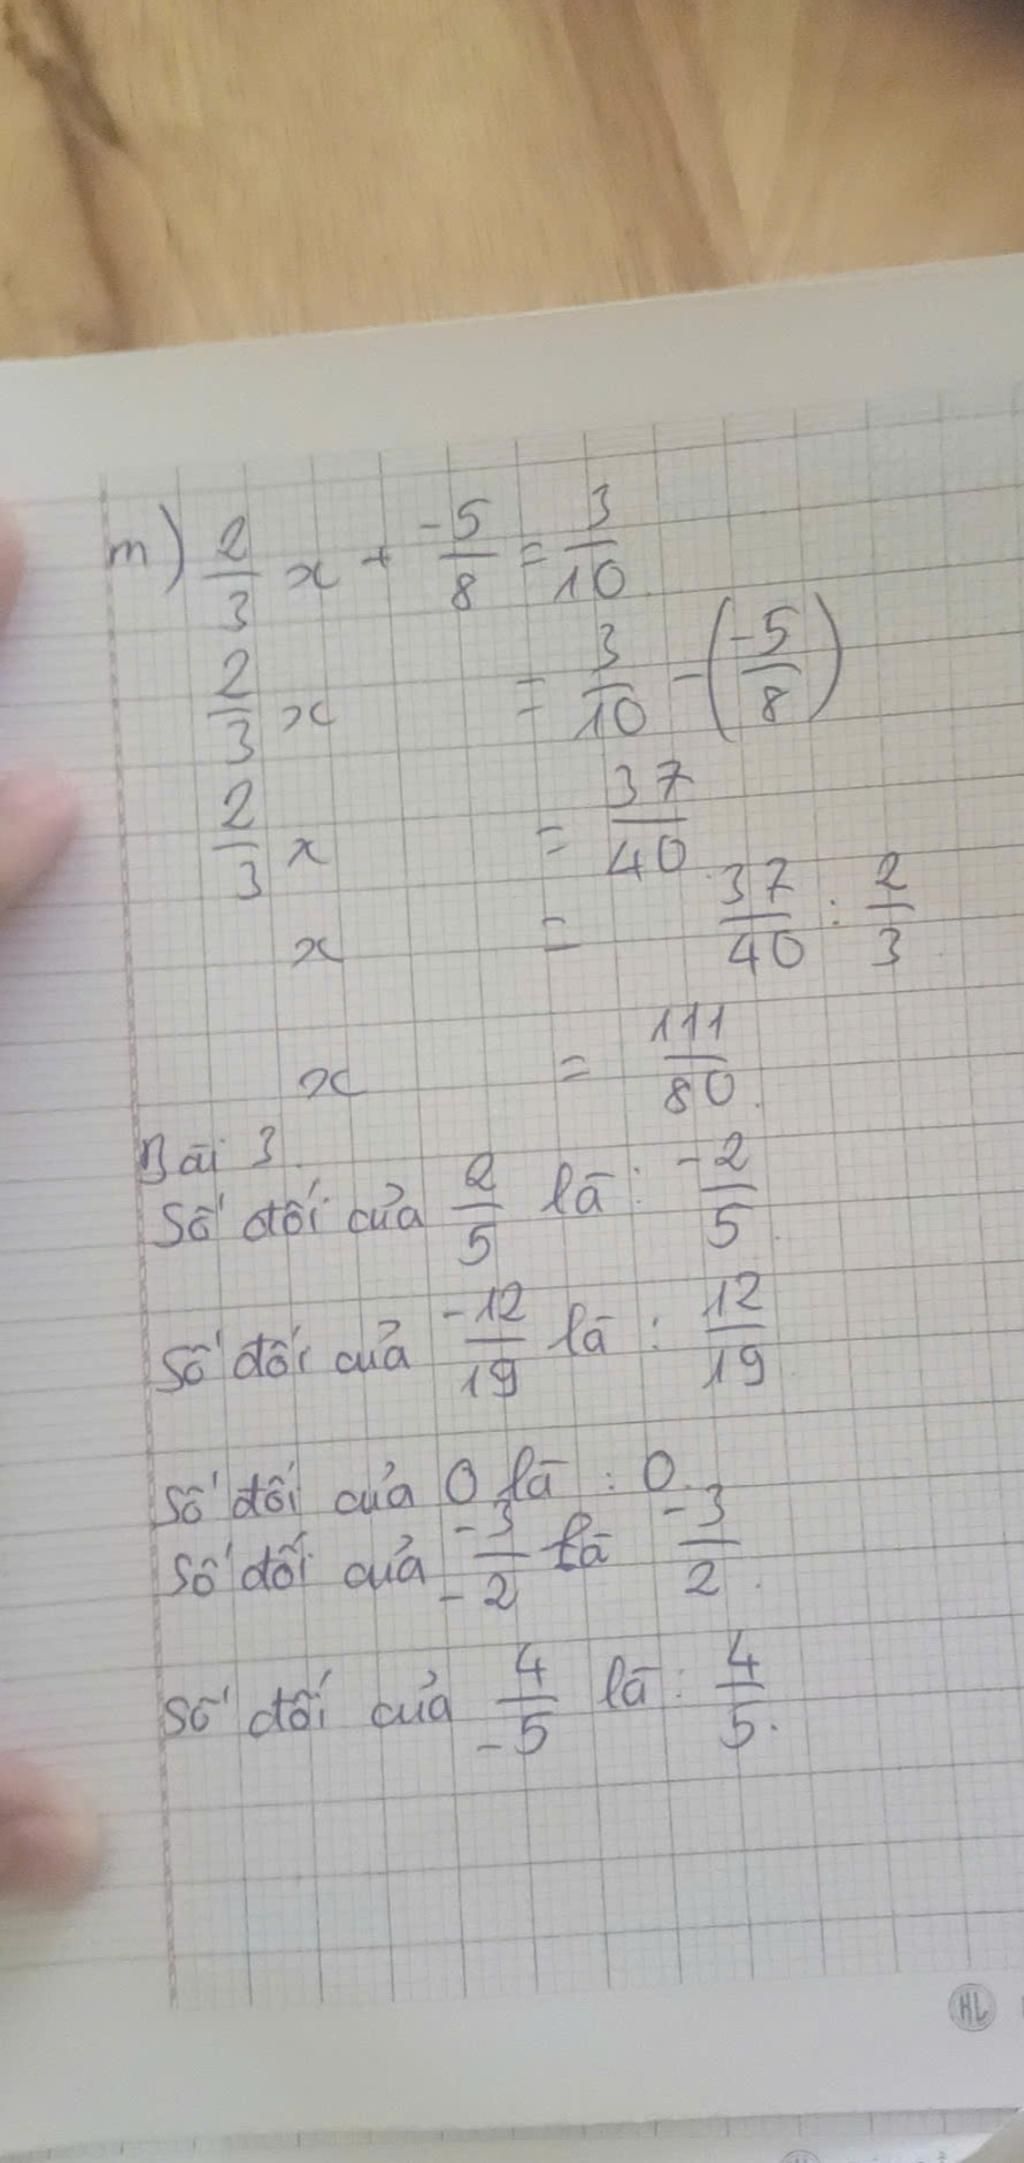 m) 2/3 x + -5/8 = 3/10
2/3 x = 3/10 - (-5/8)
2/3 x = 37/40
x = 37/40 : 2/3
x = 111/80.
Bài 3.
Số đối của 2/5 là : -2/5.
Số đối của -12/19 là : 12/19
Số đối của 0 là : 0.
Số đối của -3/-2 là -3/2.
Số đối của 4/-5 là : 4/5.
HL